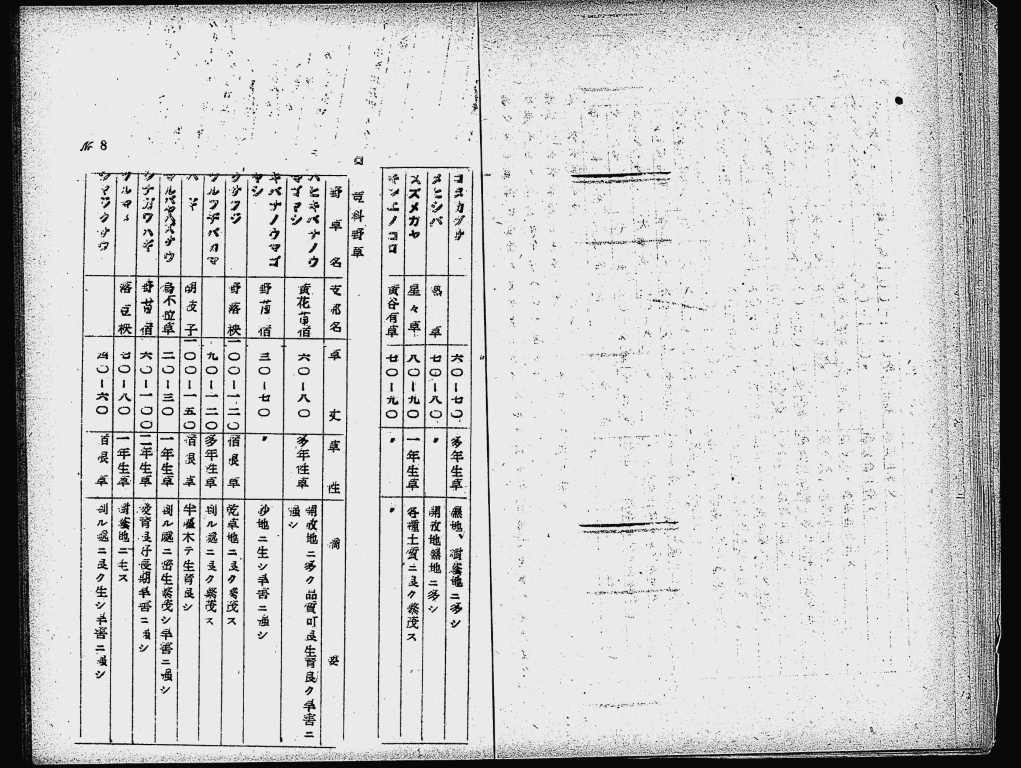 コヌカグサ 六〇-七〇 多年生草 濕地、溝畓地ニ多シ
メヒシバ 草 七〇-八〇 〃 開放地濕地ニ多シ
スズメガヤ 星々草 八〇-九〇 一年生草 各種土質ニ良ク繁茂ス
キンエノコロ 黄谷有草 七〇-九〇 〃 〃
豆科野草
野草名 支那名 草丈 草性 摘要
ハヒキバナノウマゴヤシ 黄花苜宿 六〇-八〇 多年性草 開放地ニ多ク品質可良生育良ク旱害ニ強シ
キバナノウマゴヤシ 野苜宿 三〇-七〇 〃 沙地ニ生シ旱害ニ強シ
クサフジ 野落秧 一〇〇-一二〇 宿根草 乾草地ニ良ク繁茂ス
ツルフヂバカマ 九〇-一二〇 多年生草 到ル處ニ良ク繁茂ス
ハギ 明皮子 一〇〇-一五〇 宿根草 半灌木テ生育良シ
マルバヤハズサウ 烏不立草 二〇-三〇 一年生草 到ル處ニ密生繁茂シ旱害ニ強シ
シナガワハギ 野苜宿 六〇-一〇〇 二年生草 發育良好長期旱害ニ強シ
ツルマメ 落豆秧 七〇-八〇 一年生草 地ニモス
四〇-六〇 宿根草 到ル處ニ良ク生シ旱害ニ強シ
№ 8